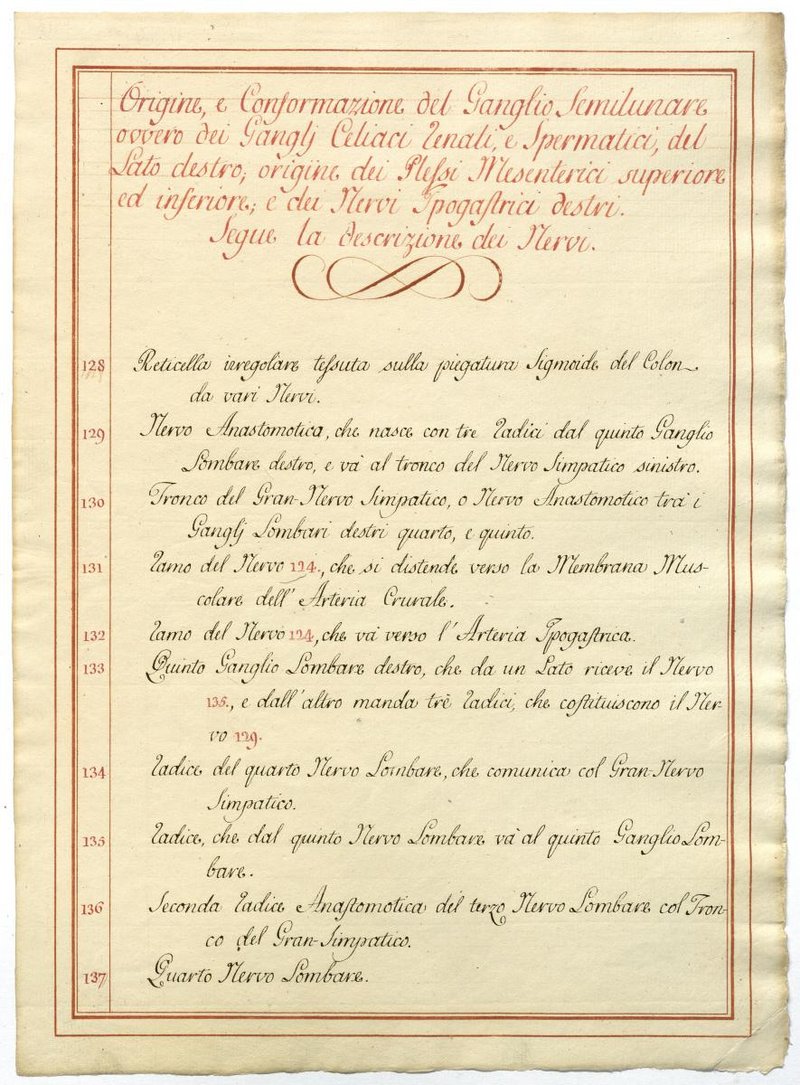 Origine, e Conformazione del Ganglio Semilunare
ovvero dei Ganglj Celiaci Renali, e Spermatici, del
Lato destro; origine dei Plessi Mesenterici superiore
ed inferiore; e dei Nervi Ipogastrici destri.
Segue la Descrizione dei Nervi.
128 Reticella irregolare tessuta sulla piegatura Sigmoide del Colon
da vari Nervi.
129 Nervo Anastomotica, che nasce con tre Radici dal quinto Ganglio
Lombare destro, e và al tronco del Nervo Simpatico sinistro.
130 Tronco del Gran-Nervo Simpatico, o Nervo Anastomotico trà i
Ganglj Lombari destri quarto, e quinto.
131 Ramo del Nervo 124., che si distende verso la Membrana Mus-
colare dell' Arteria Crurale.
132 Ramo del Nervo 124, che và verso l' Arteria Ipogastrica.
133 Quinto Ganglio Lombare destro, che da un Lato riceve il Nervo
135., e dall' altro manda trè Radici, che costituiscono il Ner-
vo 129.
134 Radice del quarto Nervo Lombare, che comunica col Gran-Nervo
Simpatico.
135 Radice, che dal quinto Nervo Lombare và al quinto Ganglio Lom-
bare.
136 Seconda Radice Anastomotica del terzo Nervo Lombare col Tron-
co del Gran-Simpatico.
137 Quarto Nervo Lombare.